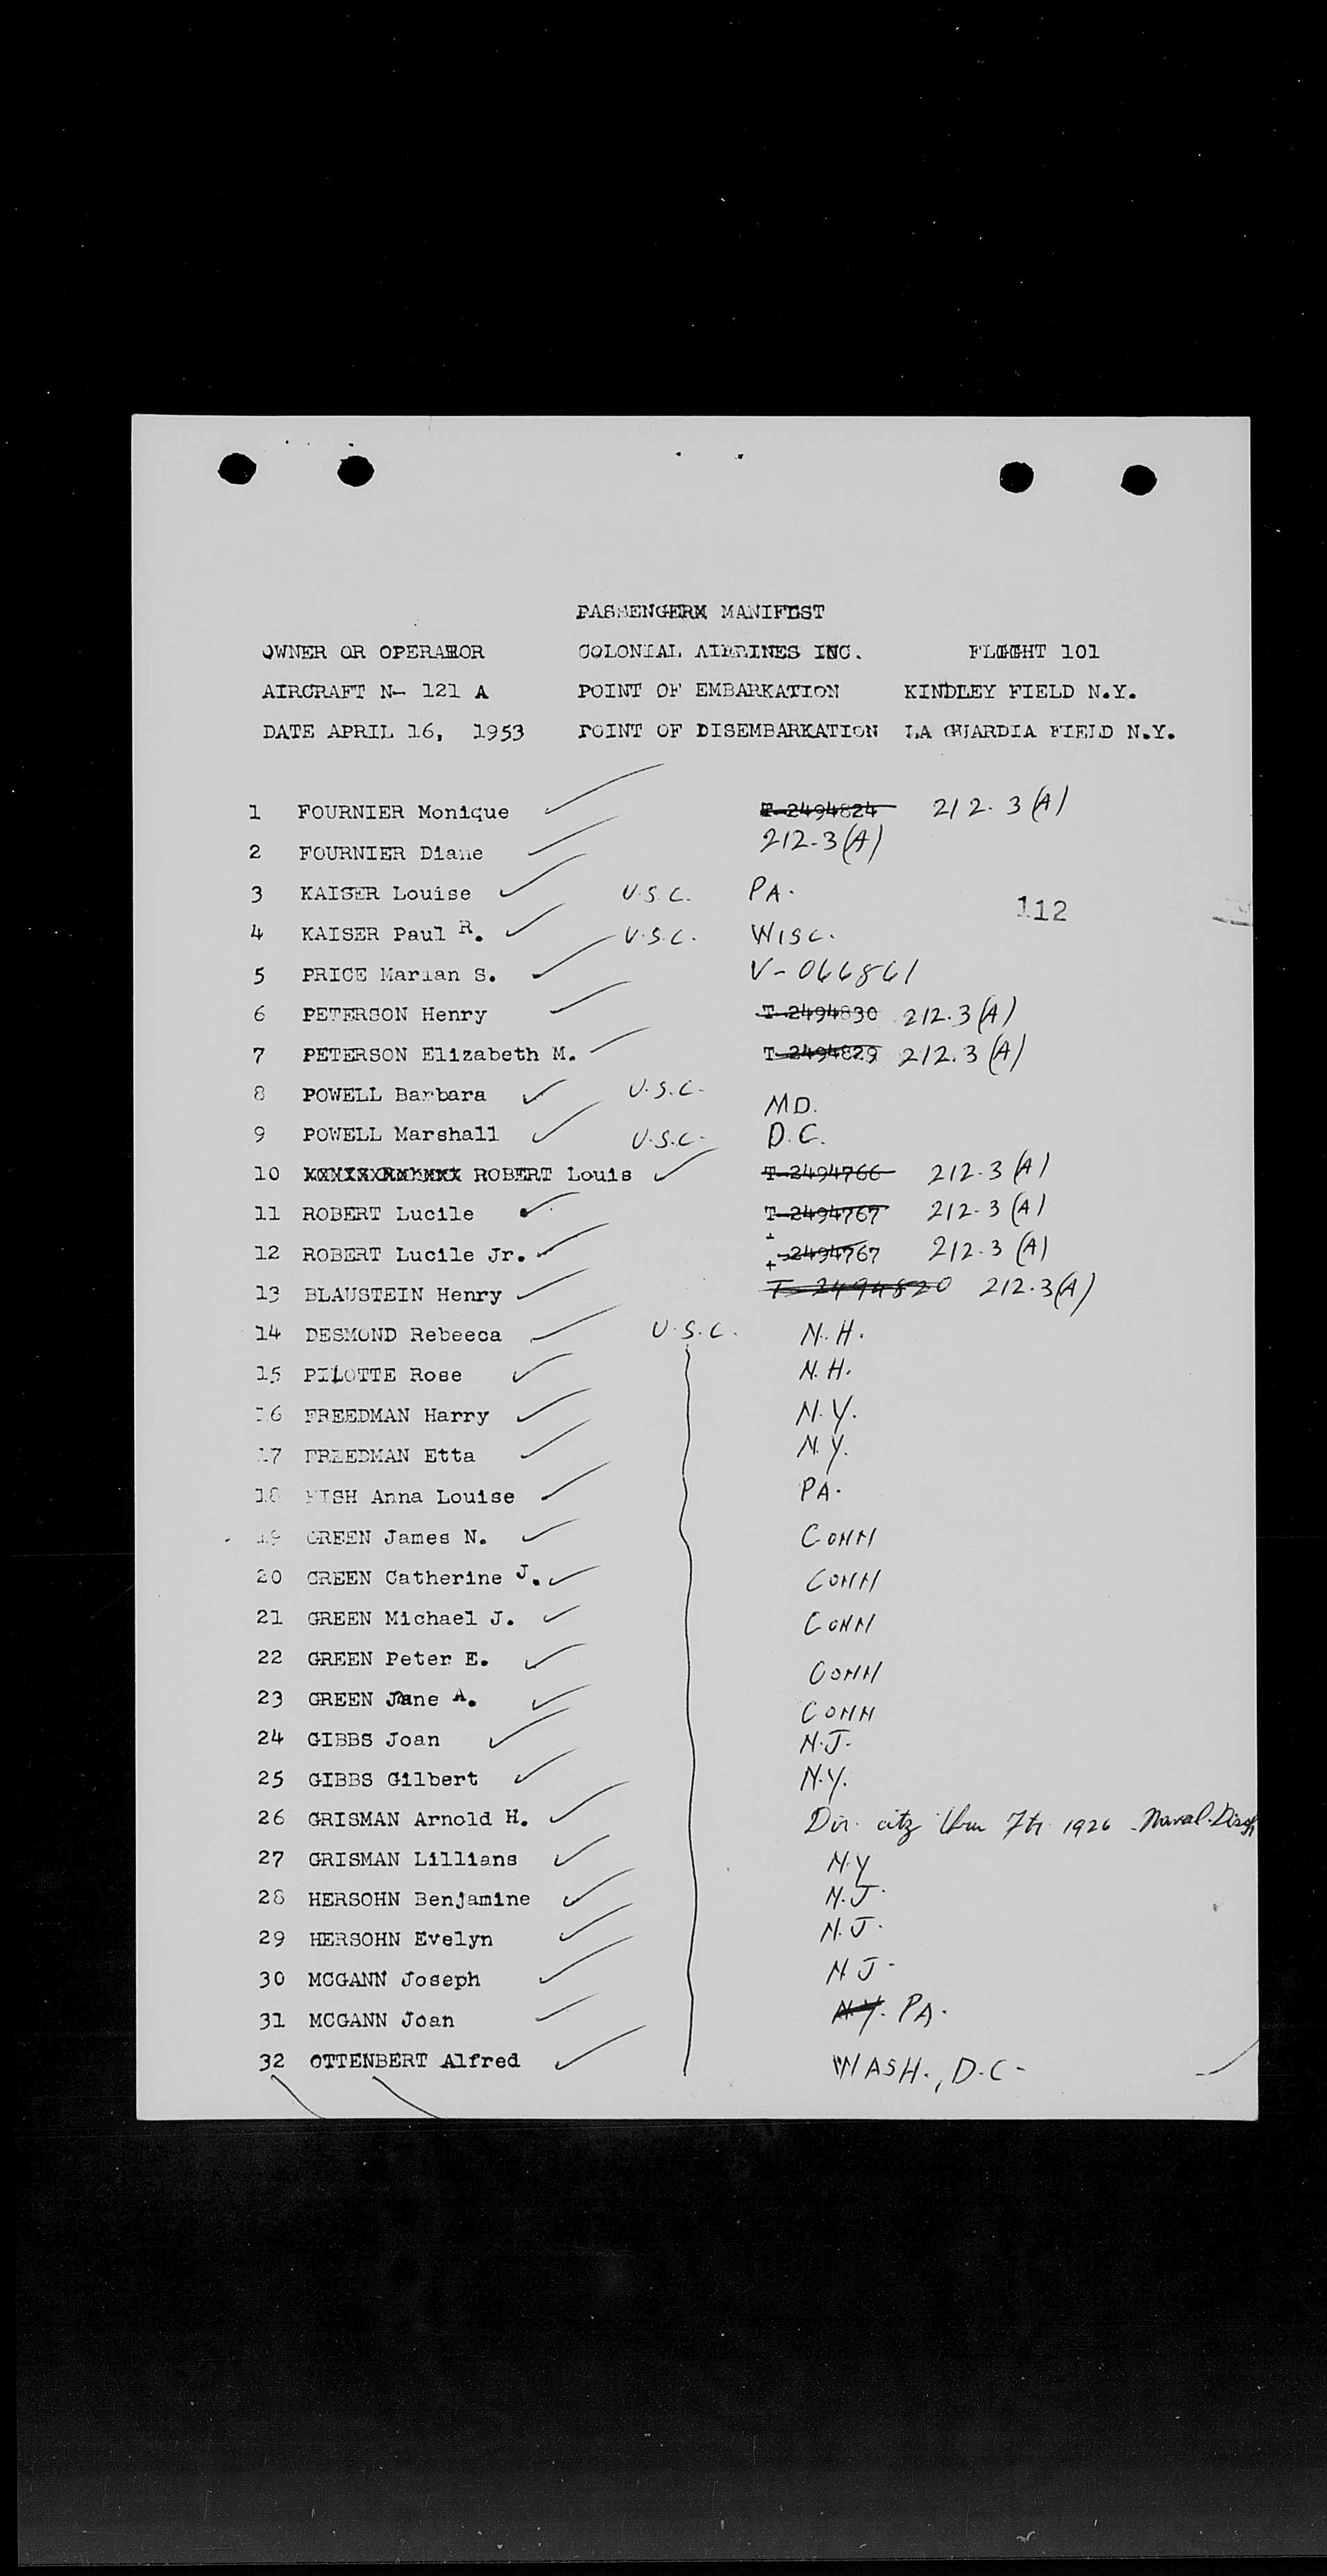 PASSENGERX MANIFEST
OWNER OR OPERATOR COLONIAL AIRLINES INC. FLIGHT 101
AIRCRAFT N- 121 A POINT OF EMBARKATION KINDLEY FIELD N.Y.
DATE APRIL 16, 1953 POINT OF DISEMBARKATION LA GUARDIA FIELD N.Y.
1 FOURNIER Monique T-2494824 212.3(A)
2 FOURNIER Diane 212-3(A)
3 KAISER Louise U.S.C. PA.
112
4 KAISER Paul R. U.S.C. WISC.
5 PRICE Marian S. V-066861
6 PETERSON Henry T-2494830 212.3(A)
7 PETERSON Elizabeth M. T-2494829 212.3(A)
8 POWELL Barbara U.S.C. MD.
9 POWELL Marshall U.S.C. D.C.
10 ROBERT Louis T-2494766 212.3(A)
11 ROBERT Lucile T-2494767 212-3(A)
12 ROBERT Lucile Jr. 2494767 212-3(A)
13 BLAUSTEIN Henry T-2494820 212.3(A)
14 DESMOND Rebeeca U.S.C. N.H.
15 PILOTTE Rose N.H.
16 FREEDMAN Harry N.Y.
17 FREEDMAN Etta N.Y.
18 FISH Anna Louise PA.
19 GREEN James N. CONN
20 GREEN Catherine J. CONN
21 GREEN Michael J. CONN
22 GREEN Peter E. CONN
23 GREEN Jane A. CONN
24 GIBBS Joan N.J.
25 GIBBS Gilbert N.Y.
26 GRISMAN Arnold H. Dir. citz thru Ftr. 1926 Naval.
27 GRISMAN Lillians N.Y
28 HERSOHN Benjamine N.J.
29 HERSOHN Evelyn N.J.
30 MCGANN Joseph N J.
31 MCGANN Joan N.Y. PA.
32 OTTENBERT Alfred WASH., D.C.